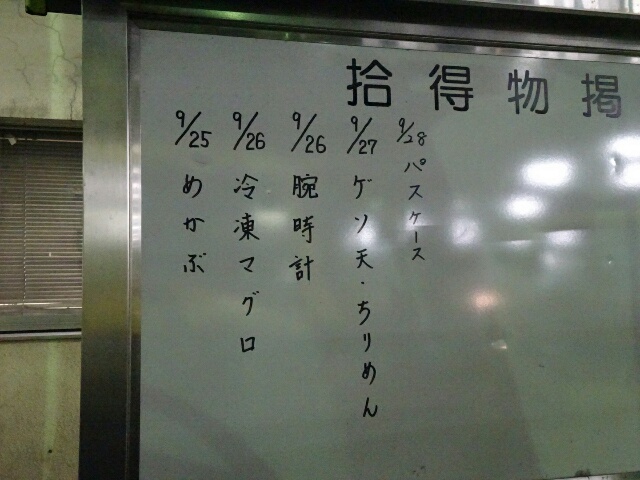 拾得物掲
9/28 パスケース
9/27 ゲソ天・ちりめん
9/26 腕時計
9/26 冷凍マグロ
9/25 めかぶ